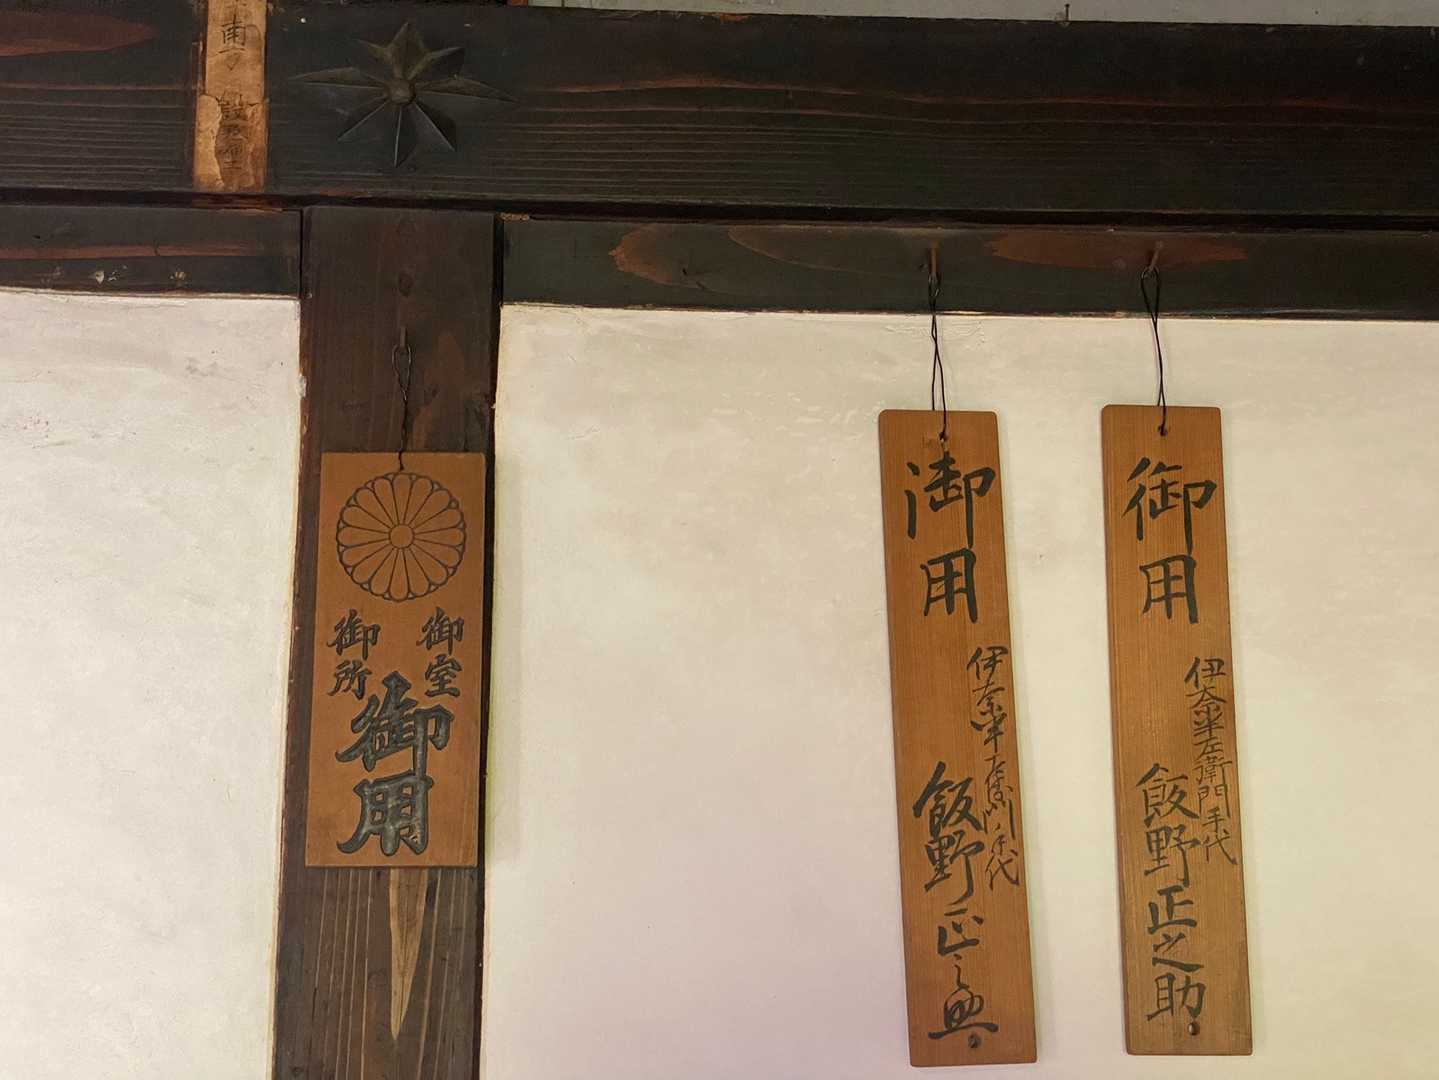 御室
御所
御用
御用
伊奈半左衛門手代
飯野正之助
御用
伊奈半左衛門手代
飯野正之助